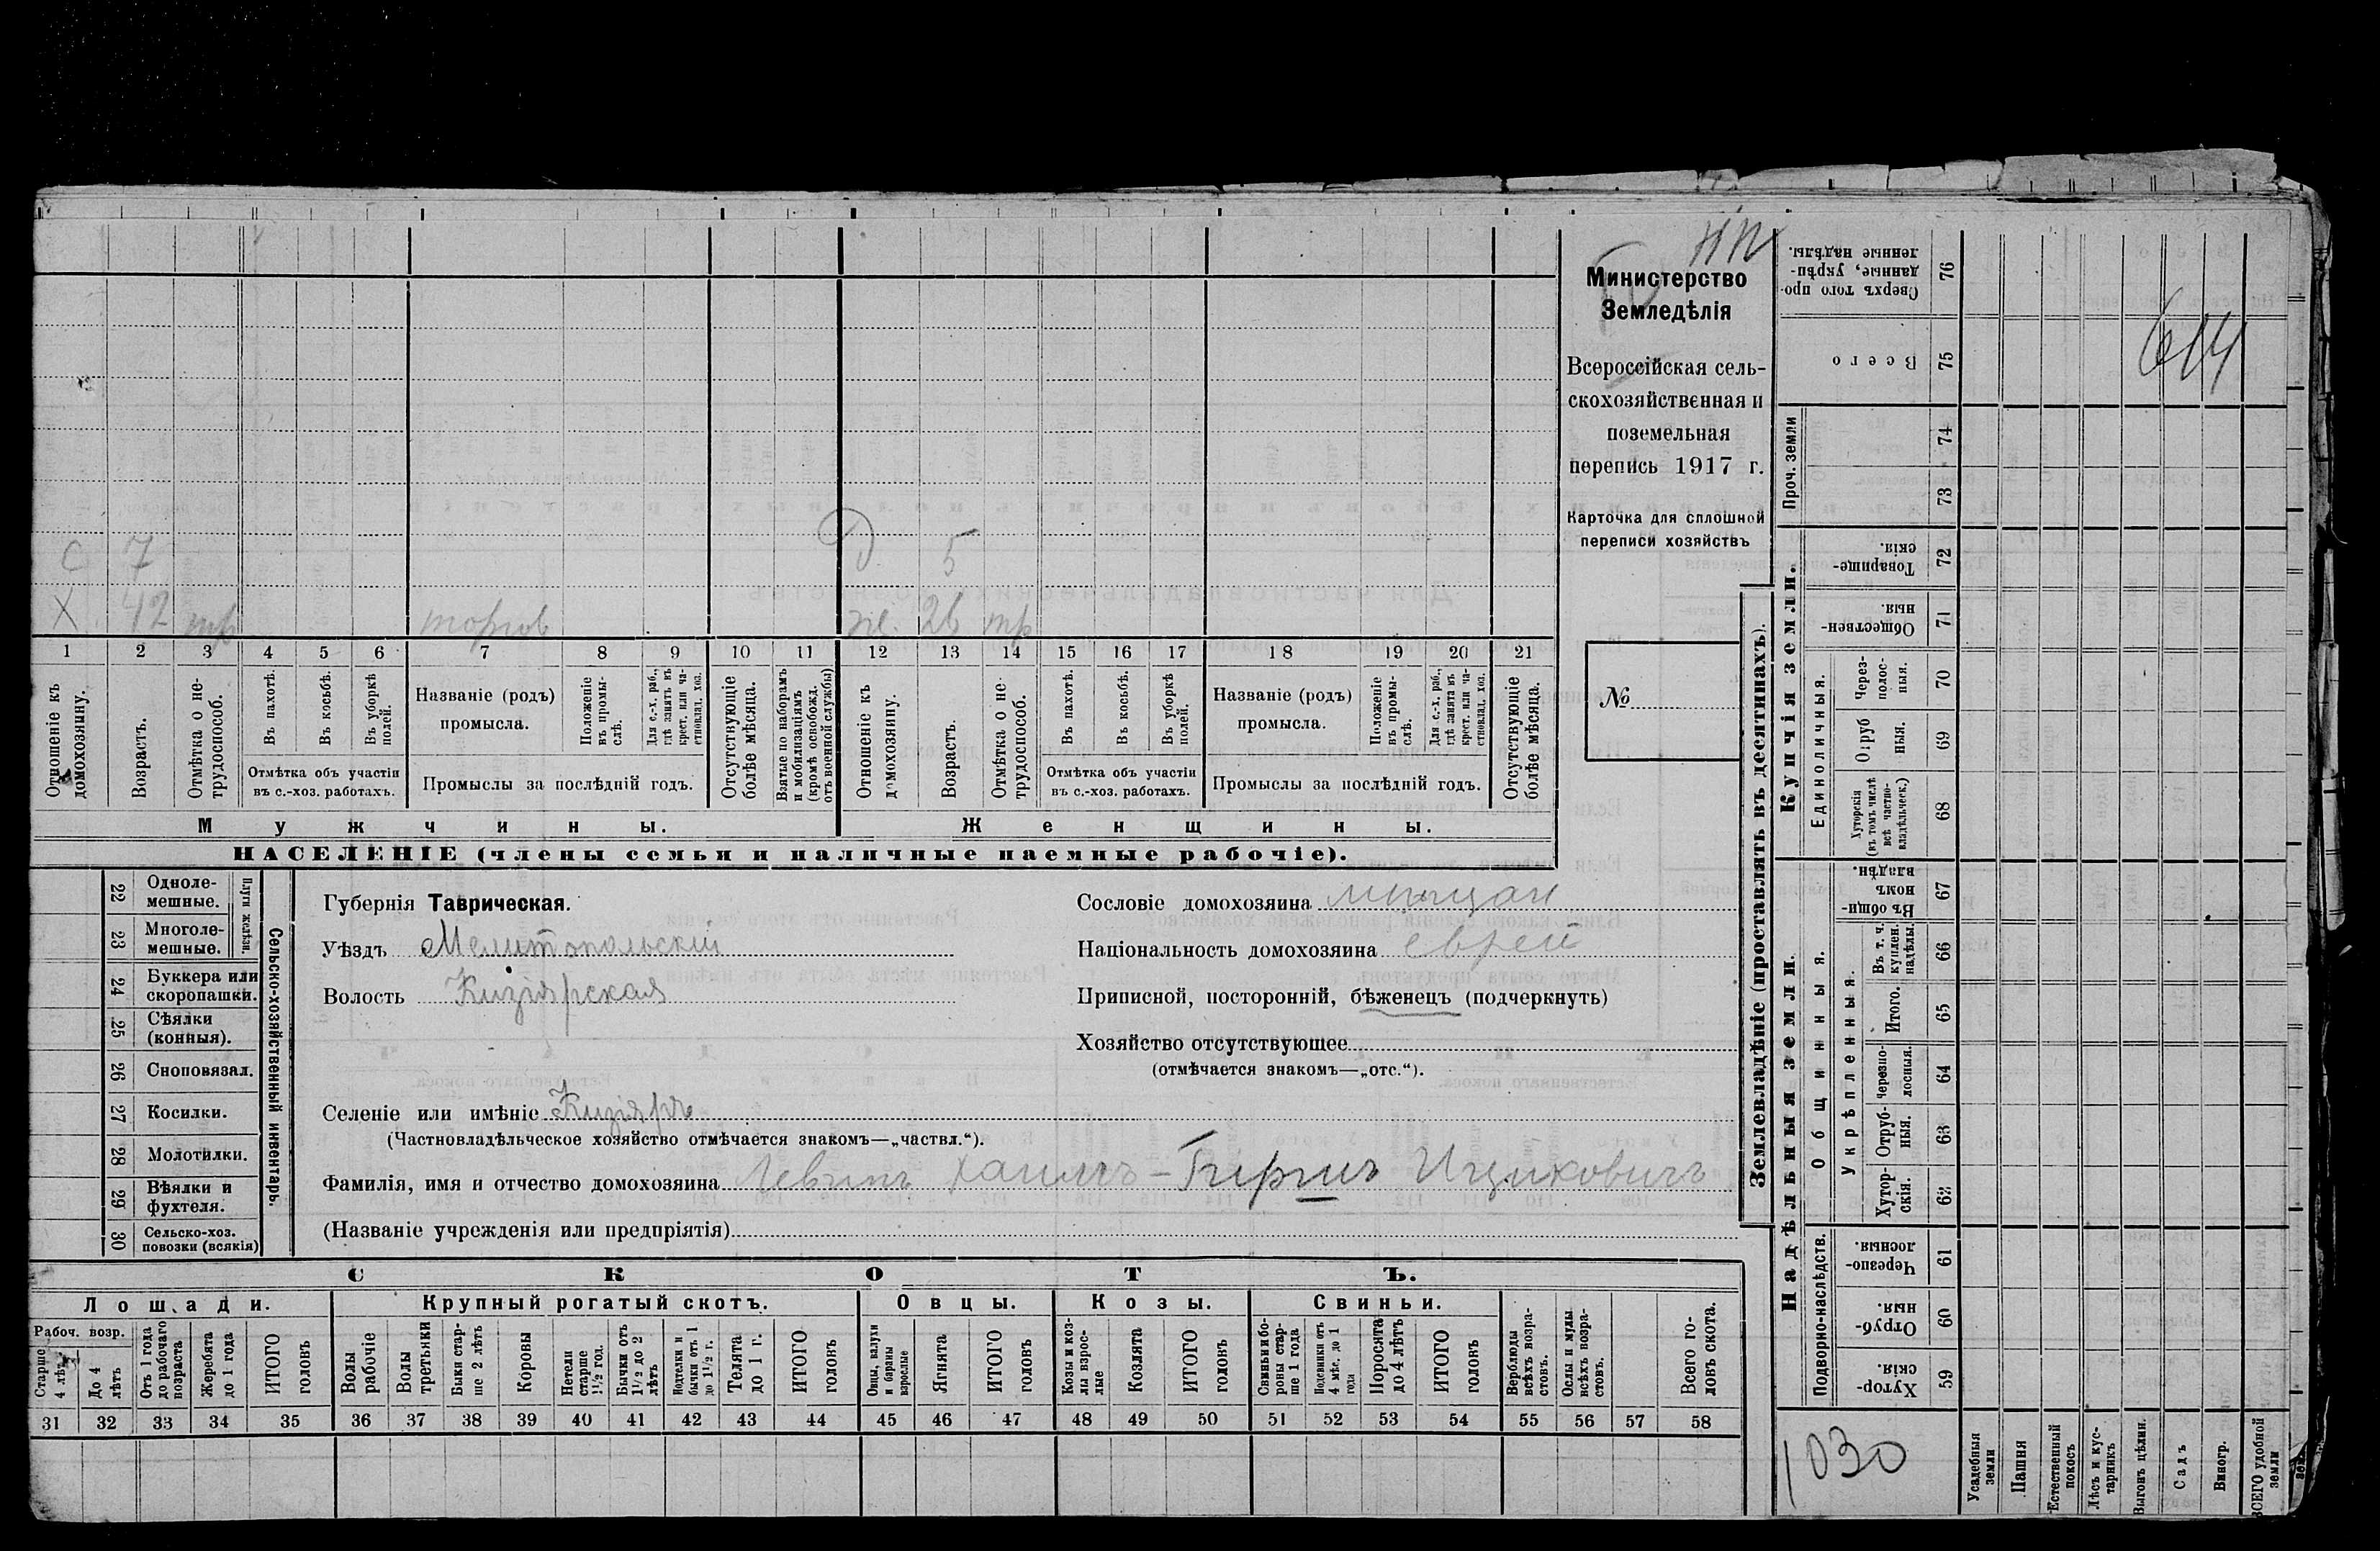 Министерство
Земледѣлія
Всероссійская сель-
скохозяйственная и
поземельная
перепись 1917 г.
Карточка для сплошной
переписи хозяйствъ
№
С 7
Д. 5
Х 42 тр торгов
ж. 26 тр
1 2 3 4 5 6 7 8 9 10 11 12 13 14 15 16 17 18 19 20 21
Отношеніе къ домохозяину.
Возрастъ.
Отмѣтка о не-трудоспособ.
Въ пахотѣ.
Въ косьбѣ.
Въ уборкѣ полей.
Названіе (родъ) промысла.
Положеніе въ промы-слѣ.
Для с.-х. раб., гдѣ занятъ въ крест. или ча-стновлад. хоз.
Отсутствующіе болѣе мѣсяца.
Взятые по наборамъ и мобилизаціямъ (кромѣ освобожд. отъ военной службы)
Отношеніе къ домохозяину.
Возрастъ.
Отмѣтка о не-трудоспособ.
Въ пахотѣ.
Въ косьбѣ.
Въ уборкѣ полей.
Названіе (родъ) промысла.
Положеніе въ промы-слѣ.
Для с.-х. раб., гдѣ занята въ крест. или ча-стновлад. хоз.
Отсутствующіе болѣе мѣсяца.
Отмѣтка объ участіи въ с.-хоз. работахъ.
Промыслы за послѣдній годъ.
Отмѣтка объ участіи въ с.-хоз. работахъ.
Промыслы за послѣдній годъ.
Мужчины.
Женщины.
НАСЕЛЕНІЕ (члены семьи и наличные наемные рабочіе).
Сельско-хозяйственный инвентарь.
Плуги желѣзн.
22 Одноле-мешные.
23 Многоле-мешные.
24 Буккера или скоропашки.
25 Сѣялки (конныя).
26 Сноповязал.
27 Косилки.
28 Молотилки.
29 Вѣялки и фухтеля.
30 Сельско-хоз. повозки (всякія)
Губернія Таврическая.
Уѣздъ Мелитопольскій
Волость Кизіярская
Селеніе или имѣніе Кизіяръ
(Частновладѣльческое хозяйство отмѣчается знакомъ—„частвл.“).
Сословіе домохозяина мѣщан
Національность домохозяина еврей
Приписной, посторонній, бѣженецъ (подчеркнуть)
Хозяйство отсутствующее
(отмѣчается знакомъ—„отс.“).
Фамилія, имя и отчество домохозяина Левинъ Хаимъ-Гиршъ Ицковичъ
(Названіе учрежденія или предпріятія)
СКОТЪ.
Лошади.
Крупный рогатый скотъ.
Овцы.
Козы.
Свиньи.
Рабоч. возр.
Старше 4 лѣтъ
До 4 лѣтъ
Отъ 1 года до рабочаго возраста
Жеребята до 1 года
ИТОГО головъ
Волы рабочіе
Волы третьяки
Быки стар-ше 2 лѣтъ
Коровы
Нетели старше 1½ год.
Бычки отъ 1½ до 2 лѣтъ
Подтелки и бычки отъ 1 до 1½ г.
Телята до 1 г.
ИТОГО головъ
Овцы, валухи и бараны взрослые
Ягнята
ИТОГО головъ
Козы и коз-лы взрос-лые
Козлята
ИТОГО головъ
Свиньи и бо-ровы стар-ше 1 года
Подсвинки отъ 4 мѣс. до 1 года
Поросята до 4 лѣтъ
ИТОГО головъ
Верблюды всѣхъ возра-стовъ.
Ослы и мулы всѣхъ возра-стовъ.
Всего го-ловъ скота.
31 32 33 34 35 36 37 38 39 40 41 42 43 44 45 46 47 48 49 50 51 52 53 54 55 56 57 58
Землевладѣніе (проставлять въ десятинахъ).
Купчія земли.
Надѣльныя земли.
Проч. земли
Единоличныя.
Общинныя.
Укрѣпленныя.
Подворно-наслѣдств.
76 Сверхъ того про-данные, укрѣп-ленные надѣлы.
75 Всего
74
73
72 Товарище-скія.
71 Обществен-ныя.
70 Через-полос-ныя.
69 Отруб ныя.
68 Хуторскія (въ томъ числѣ всѣ частно-владѣльческ.)
67 Въ общи-номъ владѣн.
66 Въ т. ч. куплен. надѣлы.
65 Итого.
64 Черезпо-лосныя.
63 Отруб-ныя.
62 Хутор-скія.
61 Черезпо-лосныя.
60 Отруб-ныя.
59 Хутор-скія.
614
1030
Усадебныя земли
Пашня
Естественный покосъ
Лѣсъ и кус-тарникъ
Выгонъ цѣлин.
Садъ
Виногр.
ВСЕГО удобной земли